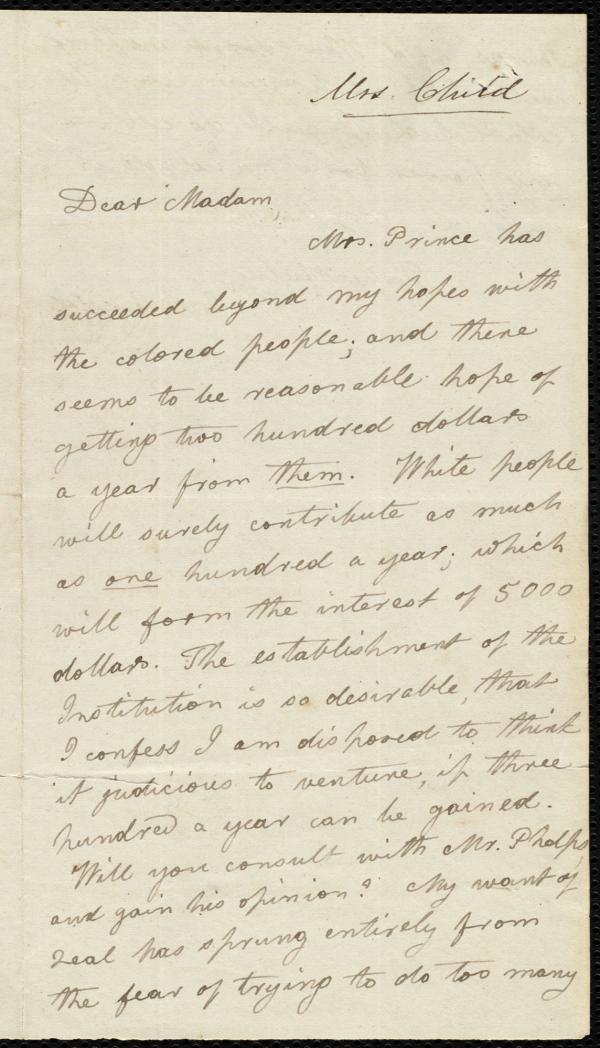 Mrs. Child
Dear Madam,
Mrs. Prince has
succeeded beyond my hopes with
the colored people; and there
seems to be reasonable hope of
getting two hundred dollars
a year from them. White people
will surely contribute as much
as one hundred a year; which
will form the interest of 5000
dollars. The establishment of the
Institution is so desirable, that
I confess I am disposed to think
it judicious to venture, if three
hundred a year can be gained.
Will you consult with Mr. Phelps,
and gain his opinion? My want of
zeal has sprung entirely from
the fear of trying to do too many